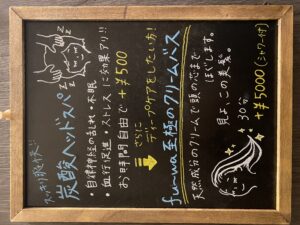 炭酸ヘッドスパ
・自律神経の乱れ・不眠
・血行促進・ストレスに効果アリ!!
お時間自由で +¥500
さらに
ディープケアをしたい方!
fu-wa至極のクリームバス
天然成分のクリームで頭の芯まで
ほぐします。
見よ、この美髪。
30分
+¥5000(シャワー付)